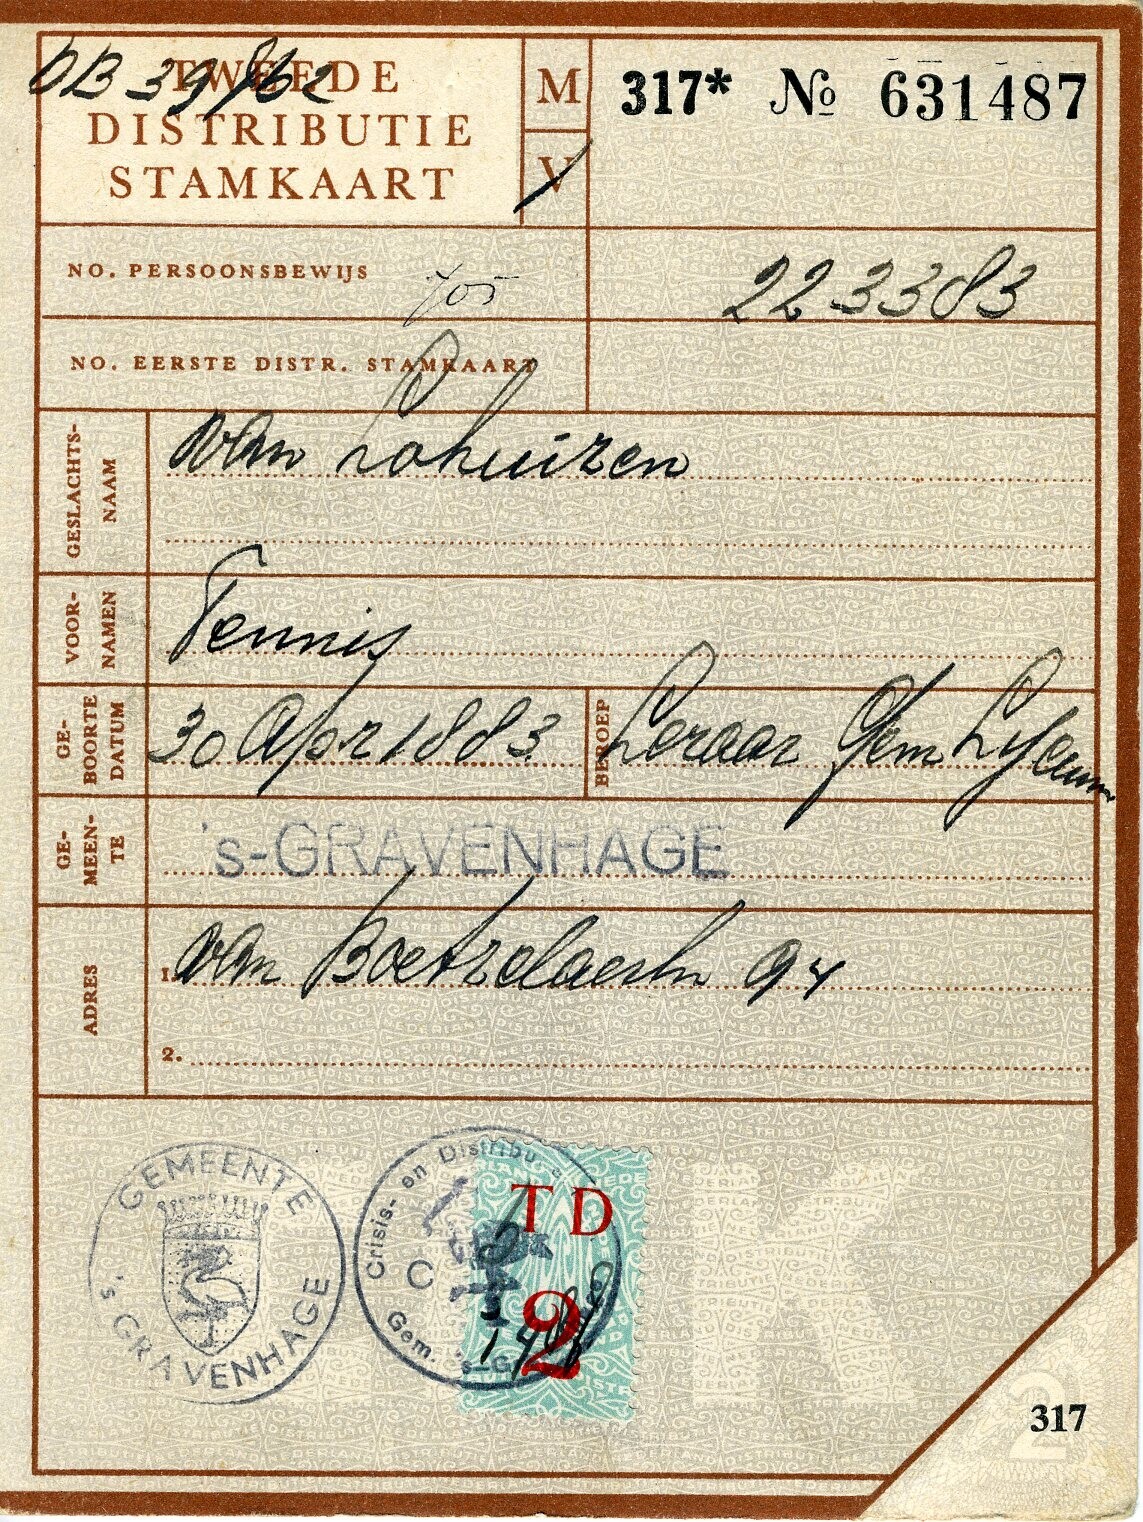 OB 39/62
TWEEDE
DISTRIBUTIE
STAMKAART
M
V
317* No 631487
NO. PERSOONSBEWIJS
223383
NO. EERSTE DISTR. STAMKAART
GESLACHTS-
NAAM
van Lohuizen
VOOR-
NAMEN
Teunis
GE-
BOORTE
DATUM
30 Apr 1883
BEROEP
Leraar Gem Lyceum
GE-
MEEN-
TE
's-GRAVENHAGE
ADRES
1. van Boetzelaerln 94
2.
GEMEENTE
's GRAVENHAGE
Crisis- en Distribu
C
Gem. 's-G
T D
2
K
2
317